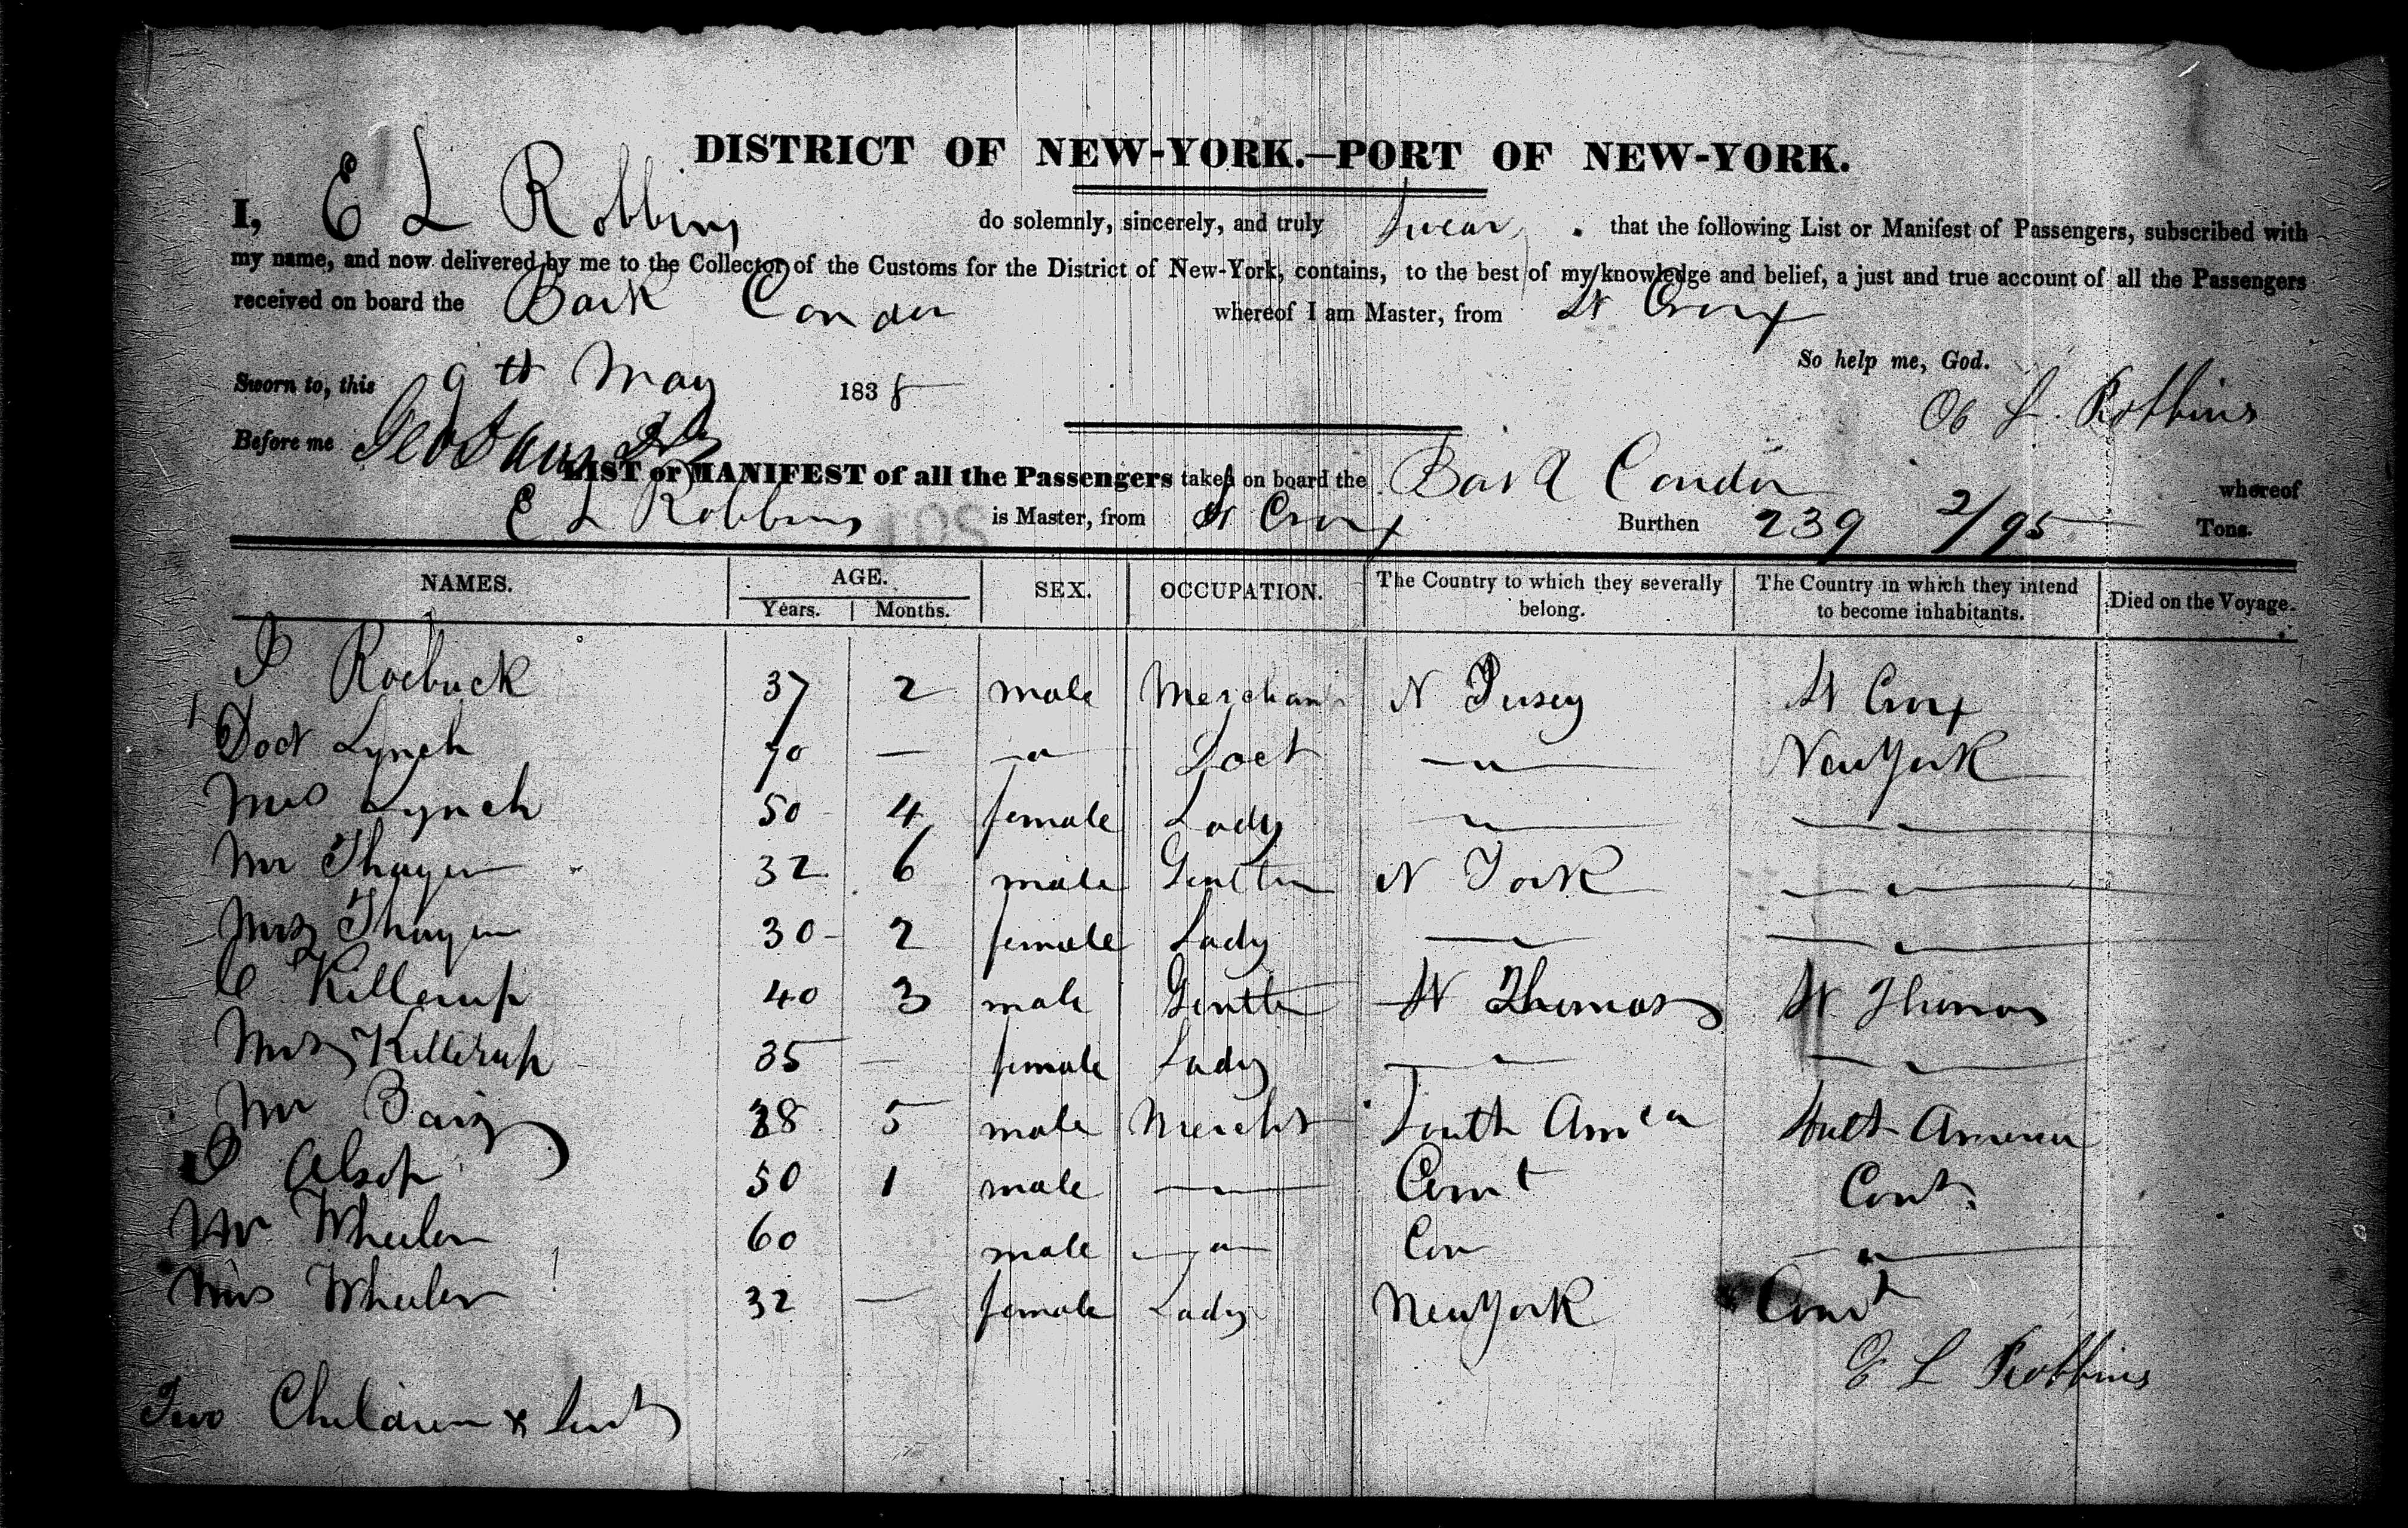 DISTRICT OF NEW-YORK.—PORT OF NEW-YORK.
I, E L Robbins do solemnly, sincerely, and truly swear, that the following List or Manifest of Passengers, subscribed with
my name, and now delivered by me to the Collector of the Customs for the District of New-York, contains, to the best of my knowledge and belief, a just and true account of all the Passengers
received on board the Bark Condor whereof I am Master, from St Croix
So help me, God.
Sworn to, this 9th May 1838
E L Robbins
Before me
LIST or MANIFEST of all the Passengers taken on board the Bark Condor whereof
E L Robbins is Master, from St Croix Burthen 239 2/95 Tons.
NAMES. AGE. SEX. OCCUPATION. The Country to which they severally belong. The Country in which they intend to become inhabitants. Died on the Voyage.
Years. Months.
Roebuck 37 2 male Merchant N Jersey St Croix
Doct Lynch 70 — " Doct — " — New York
Mrs Lynch 50 4 female Lady — " — — " —
Mr Thayer 32 6 male Gentlm N York — " —
Mrs Thayer 30 2 female Lady — " — — " —
C Killerup 40 3 male Gentle St Thomas St Thomas
Mrs Killerup 35 — female Lady — " — — " —
Mr 38 5 male Mercht South Amca South America
Alsop 50 1 male — " — Connt Cont
Mr Wheeler 60 male — " — Con — " —
Mrs Wheeler 32 — female Lady New York Connt
E L Robbins
Two Children & Servts